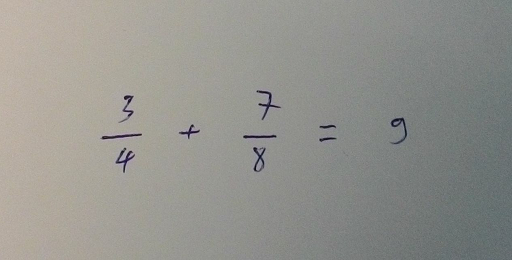 3/4 + 7/8 = 9